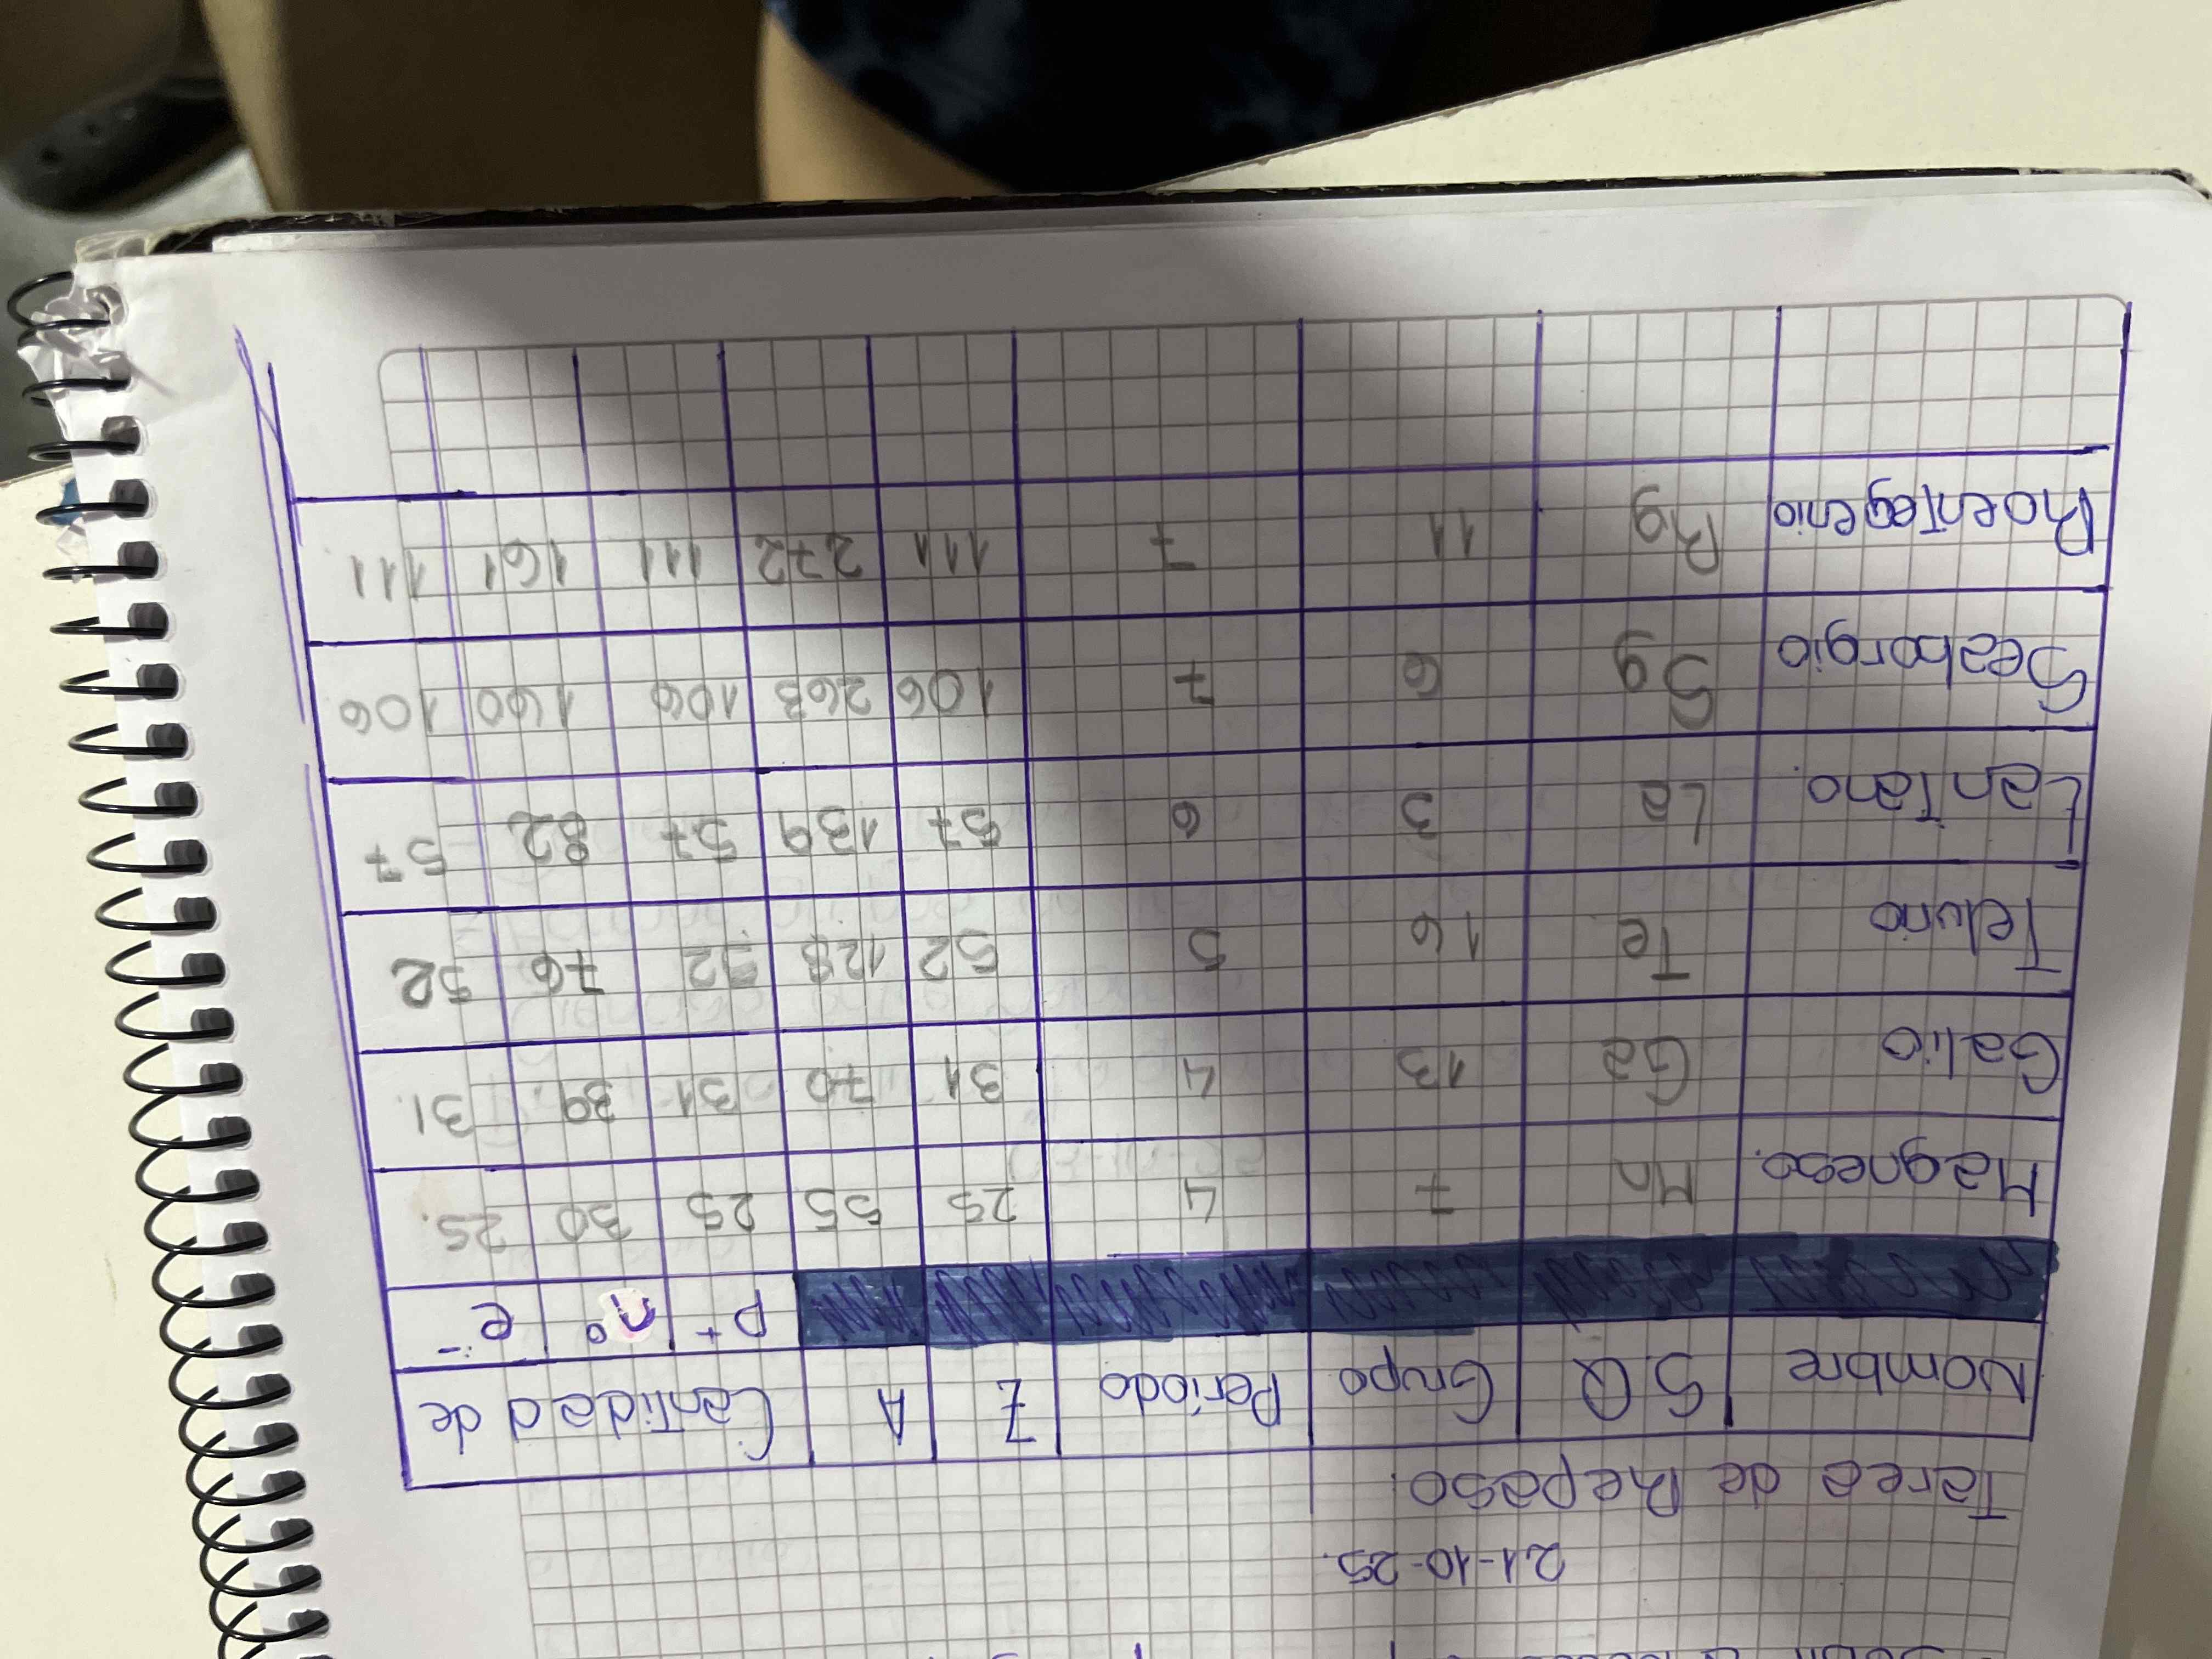 21-10-25.
Tarea de Repaso.
Nombre S.Q Grupo Período Z A Cantidad de
p+ n° e-
Magneso. Mn 7 4 25 55 25 30 25.
Galio Ga 13 4 31 70 31 39. 31.
Teluno Te 16 5 52 128 52 76 52
Lantano. La 3 6 57 139 57 82 57
Seaborgio Sg 6 7 106 106 160 106
Roentgenio Rg 11 7 111 272 111 161 111